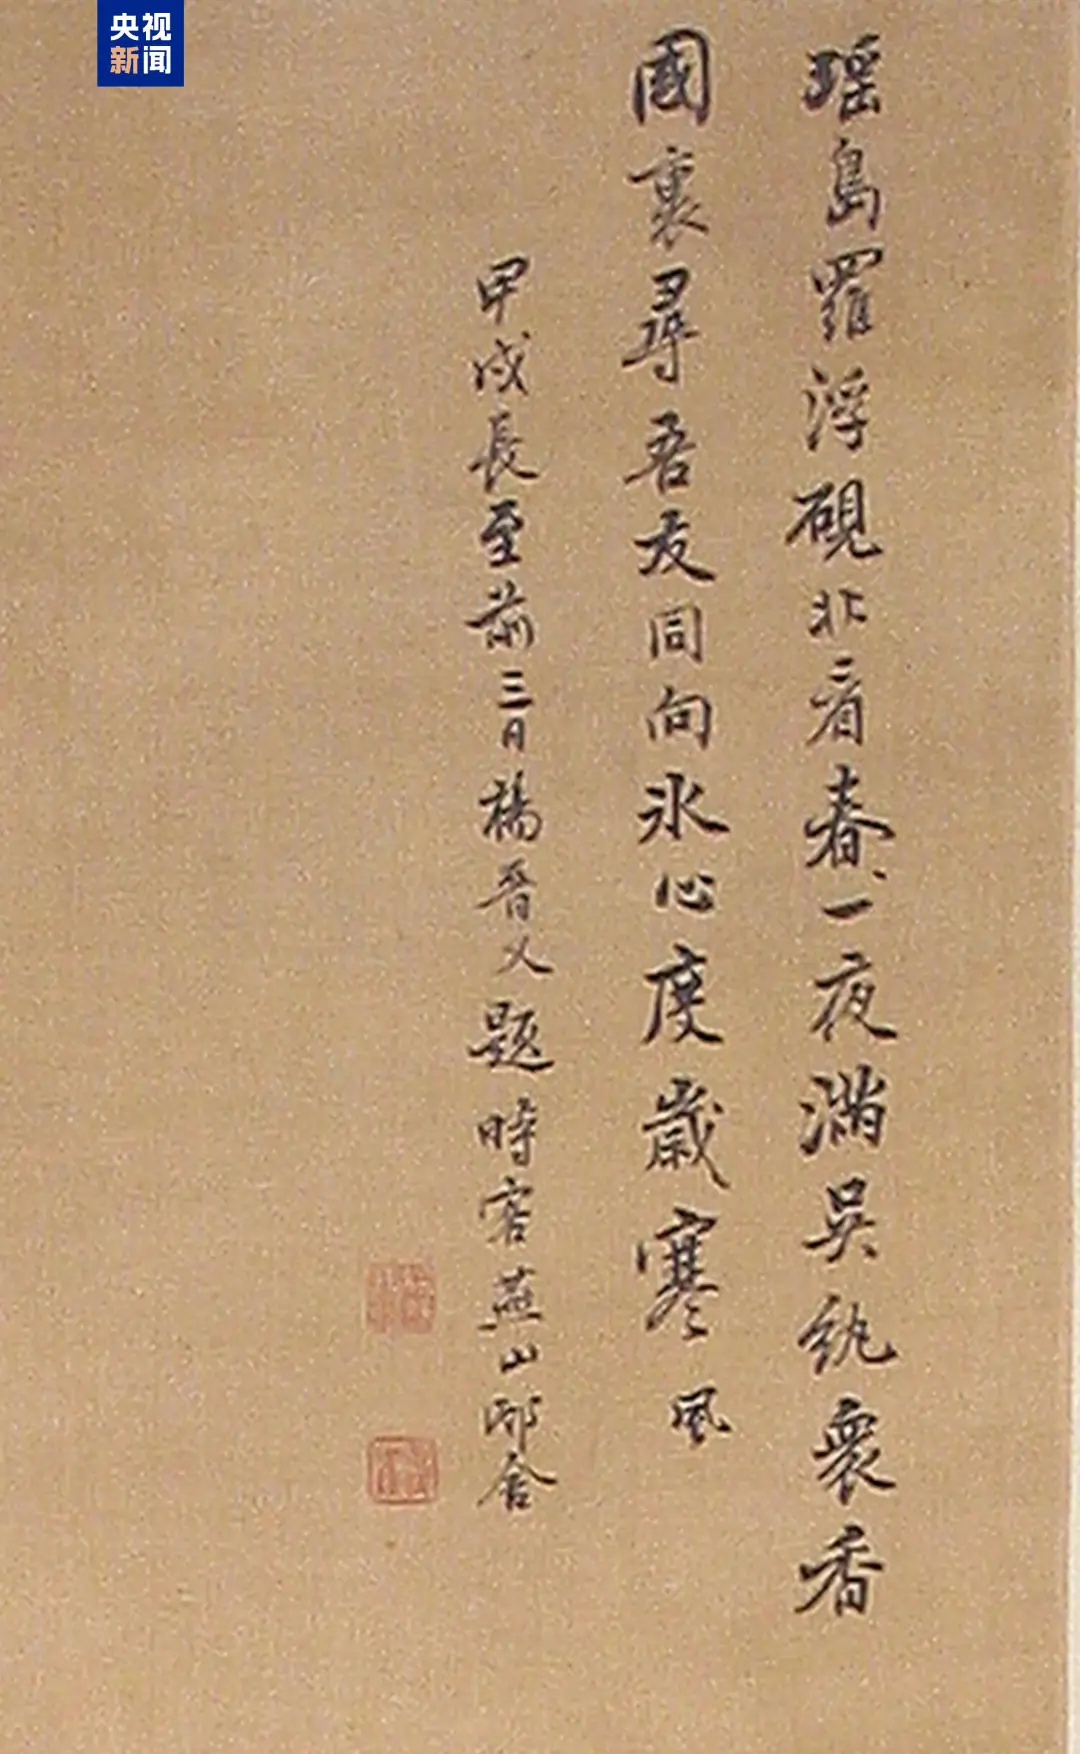 央视
新闻
瑶島羅浮硯北看春一夜滿吳紈衆香
國裏尋吾友同向氷心度歲寒風
甲戌長至前三日楊晉又題時客燕山邸舍